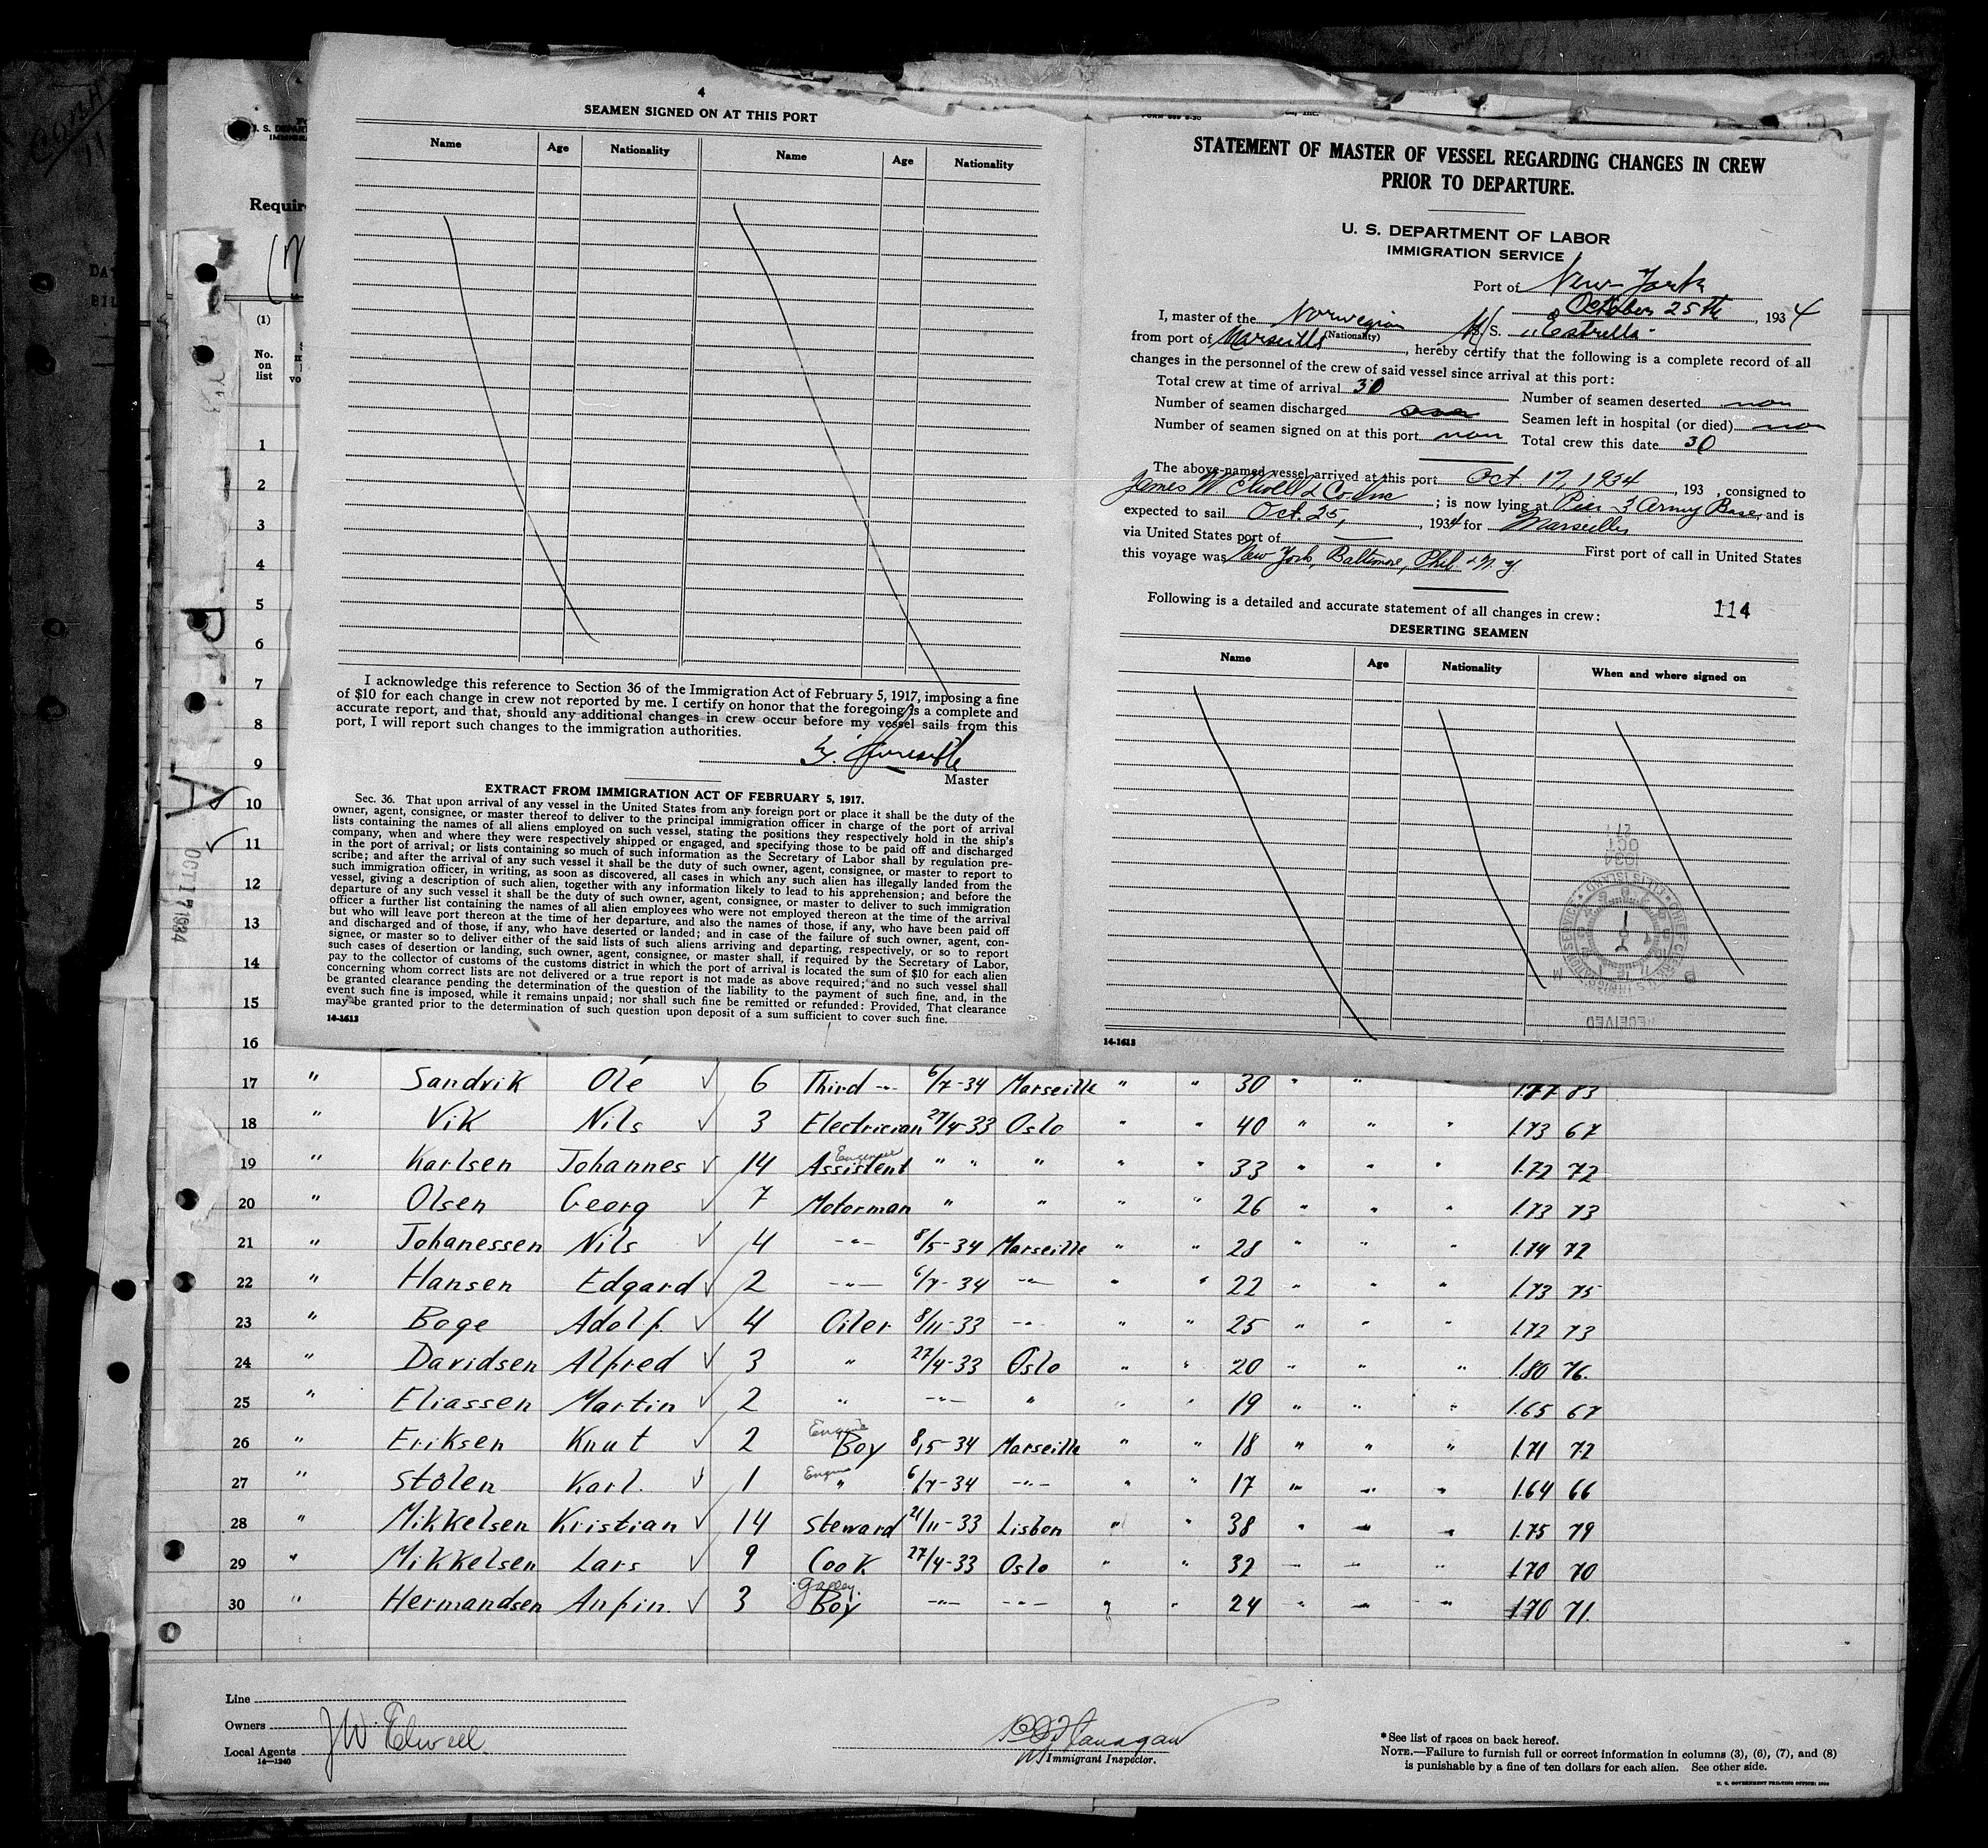 4
SEAMEN SIGNED ON AT THIS PORT
Name Age Nationality Name Age Nationality
I acknowledge this reference to Section 36 of the Immigration Act of February 5, 1917, imposing a fine
of $10 for each change in crew not reported by me. I certify on honor that the foregoing is a complete and
accurate report, and that, should any additional changes in crew occur before my vessel sails from this
port, I will report such changes to the immigration authorities.
Master
EXTRACT FROM IMMIGRATION ACT OF FEBRUARY 5, 1917.
Sec. 36. That upon arrival of any vessel in the United States from any foreign port or place it shall be the duty of the
owner, agent, consignee, or master thereof to deliver to the principal immigration officer in charge of the port of arrival
lists containing the names of all aliens employed on such vessel, stating the positions they respectively hold in the ship's
company, when and where they were respectively shipped or engaged, and specifying those to be paid off and discharged
in the port of arrival; or lists containing so much of such information as the Secretary of Labor shall by regulation pre-
scribe; and after the arrival of any such vessel it shall be the duty of such owner, agent, consignee, or master to report to
such immigration officer, in writing, as soon as discovered, all cases in which any such alien has illegally landed from the
vessel, giving a description of such alien, together with any information likely to lead to his apprehension; and before the
departure of any such vessel it shall be the duty of such owner, agent, consignee, or master to deliver to such immigration
officer a further list containing the names of all alien employees who were not employed thereon at the time of the arrival
but who will leave port thereon at the time of her departure, and also the names of those, if any, who have been paid off
and discharged and of those, if any, who have deserted or landed; and in case of the failure of such owner, agent, con-
signee, or master so to deliver either of the said lists of such aliens arriving and departing, respectively, or so to report
such cases of desertion or landing, such owner, agent, consignee, or master shall, if required by the Secretary of Labor,
pay to the collector of customs of the customs district in which the port of arrival is located the sum of $10 for each alien
concerning whom correct lists are not delivered or a true report is not made as above required; and no such vessel shall
be granted clearance pending the determination of the question of the liability to the payment of such fine, and, in the
event such fine is imposed, while it remains unpaid; nor shall such fine be remitted or refunded: Provided, That clearance
may be granted prior to the determination of such question upon deposit of a sum sufficient to cover such fine.
14-1613
STATEMENT OF MASTER OF VESSEL REGARDING CHANGES IN CREW
PRIOR TO DEPARTURE.
U. S. DEPARTMENT OF LABOR
IMMIGRATION SERVICE
Port of New-York
October 25th, 1934
I, master of the Norwegian M/S. "Estrella"
(Nationality)
from port of Marseille, hereby certify that the following is a complete record of all
changes in the personnel of the crew of said vessel since arrival at this port:
Total crew at time of arrival 30 Number of seamen deserted non
Number of seamen discharged Seamen left in hospital (or died) non
Number of seamen signed on at this port non Total crew this date 30
The above-named vessel arrived at this port Oct 17, 1934, 193 , consigned to
James W Elwell & Co. Inc ; is now lying at Pier 3 Army Base, and is
expected to sail Oct. 25, , 1934 for Marseilles
via United States port of First port of call in United States
this voyage was New York, Baltimore, Phil + N. Y
Following is a detailed and accurate statement of all changes in crew: 114
DESERTING SEAMEN
Name Age Nationality When and where signed on
27
OCT
1934
RECEIVED
14-1613
Requir
(1)
No. on list
OCT 17 1934
1
2
3
4
5
6
7
8
9
10
11
12
13
14
15
16
17 " Sandvik Ole ✓ 6 Third -"- 6/7-34 Marseille " " 30 " " 1.77 83
18 " Vik Nils ✓ 3 Electrician 27/4-33 Oslo " " 40 " " " 1.73 67
19 " Karlsen Johannes ✓ 14 Assistent Engineer " " " " " 33 " " " 1.72 72
20 " Olsen Georg ✓ 7 Motorman " " " " 26 " " " 1.73 73
21 " Johanessen Nils ✓ 4 -"- 8/5-34 Marseille " " 28 " " " 1.74 72
22 " Hansen Edgard ✓ 2 -"- 6/7-34 -"- " " 22 " " " 1.73 75
23 " Boge Adolf. ✓ 4 Oiler 8/11-33 -"- " " 25 " " " 1.72 73
24 " Davidsen Alfred ✓ 3 " 27/4-33 Oslo " " 20 " " " 1.80 76.
25 " Eliassen Martin ✓ 2 " -"- " " " 19 " " " 1.65 67
26 " Eriksen Knut ✓ 2 Engine Boy 8/5-34 Marseille " " 18 " " " 1.71 72
27 " Stölen Karl. ✓ 1 Engine " 6/7-34 -"- " " 17 " " " 1.64 66
28 " Mikkelsen Kristian ✓ 14 Steward 21/11-33 Lisbon " " 38 " " " 1.75 79
29 " Mikkelsen Lars ✓ 9 Cook 27/4-33 Oslo " " 32 " " " 1.70 70
30 " Hermandsen Anfin. ✓ 3 Galley Boy -"- -"- " " 24 " " " 1.70 71.
Line
Owners
Local Agents J W. Elwell
14-1240
Immigrant Inspector.
*See list of races on back hereof.
NOTE.—Failure to furnish full or correct information in columns (3), (6), (7), and (8)
is punishable by a fine of ten dollars for each alien. See other side.
U. S. GOVERNMENT PRINTING OFFICE: 1930